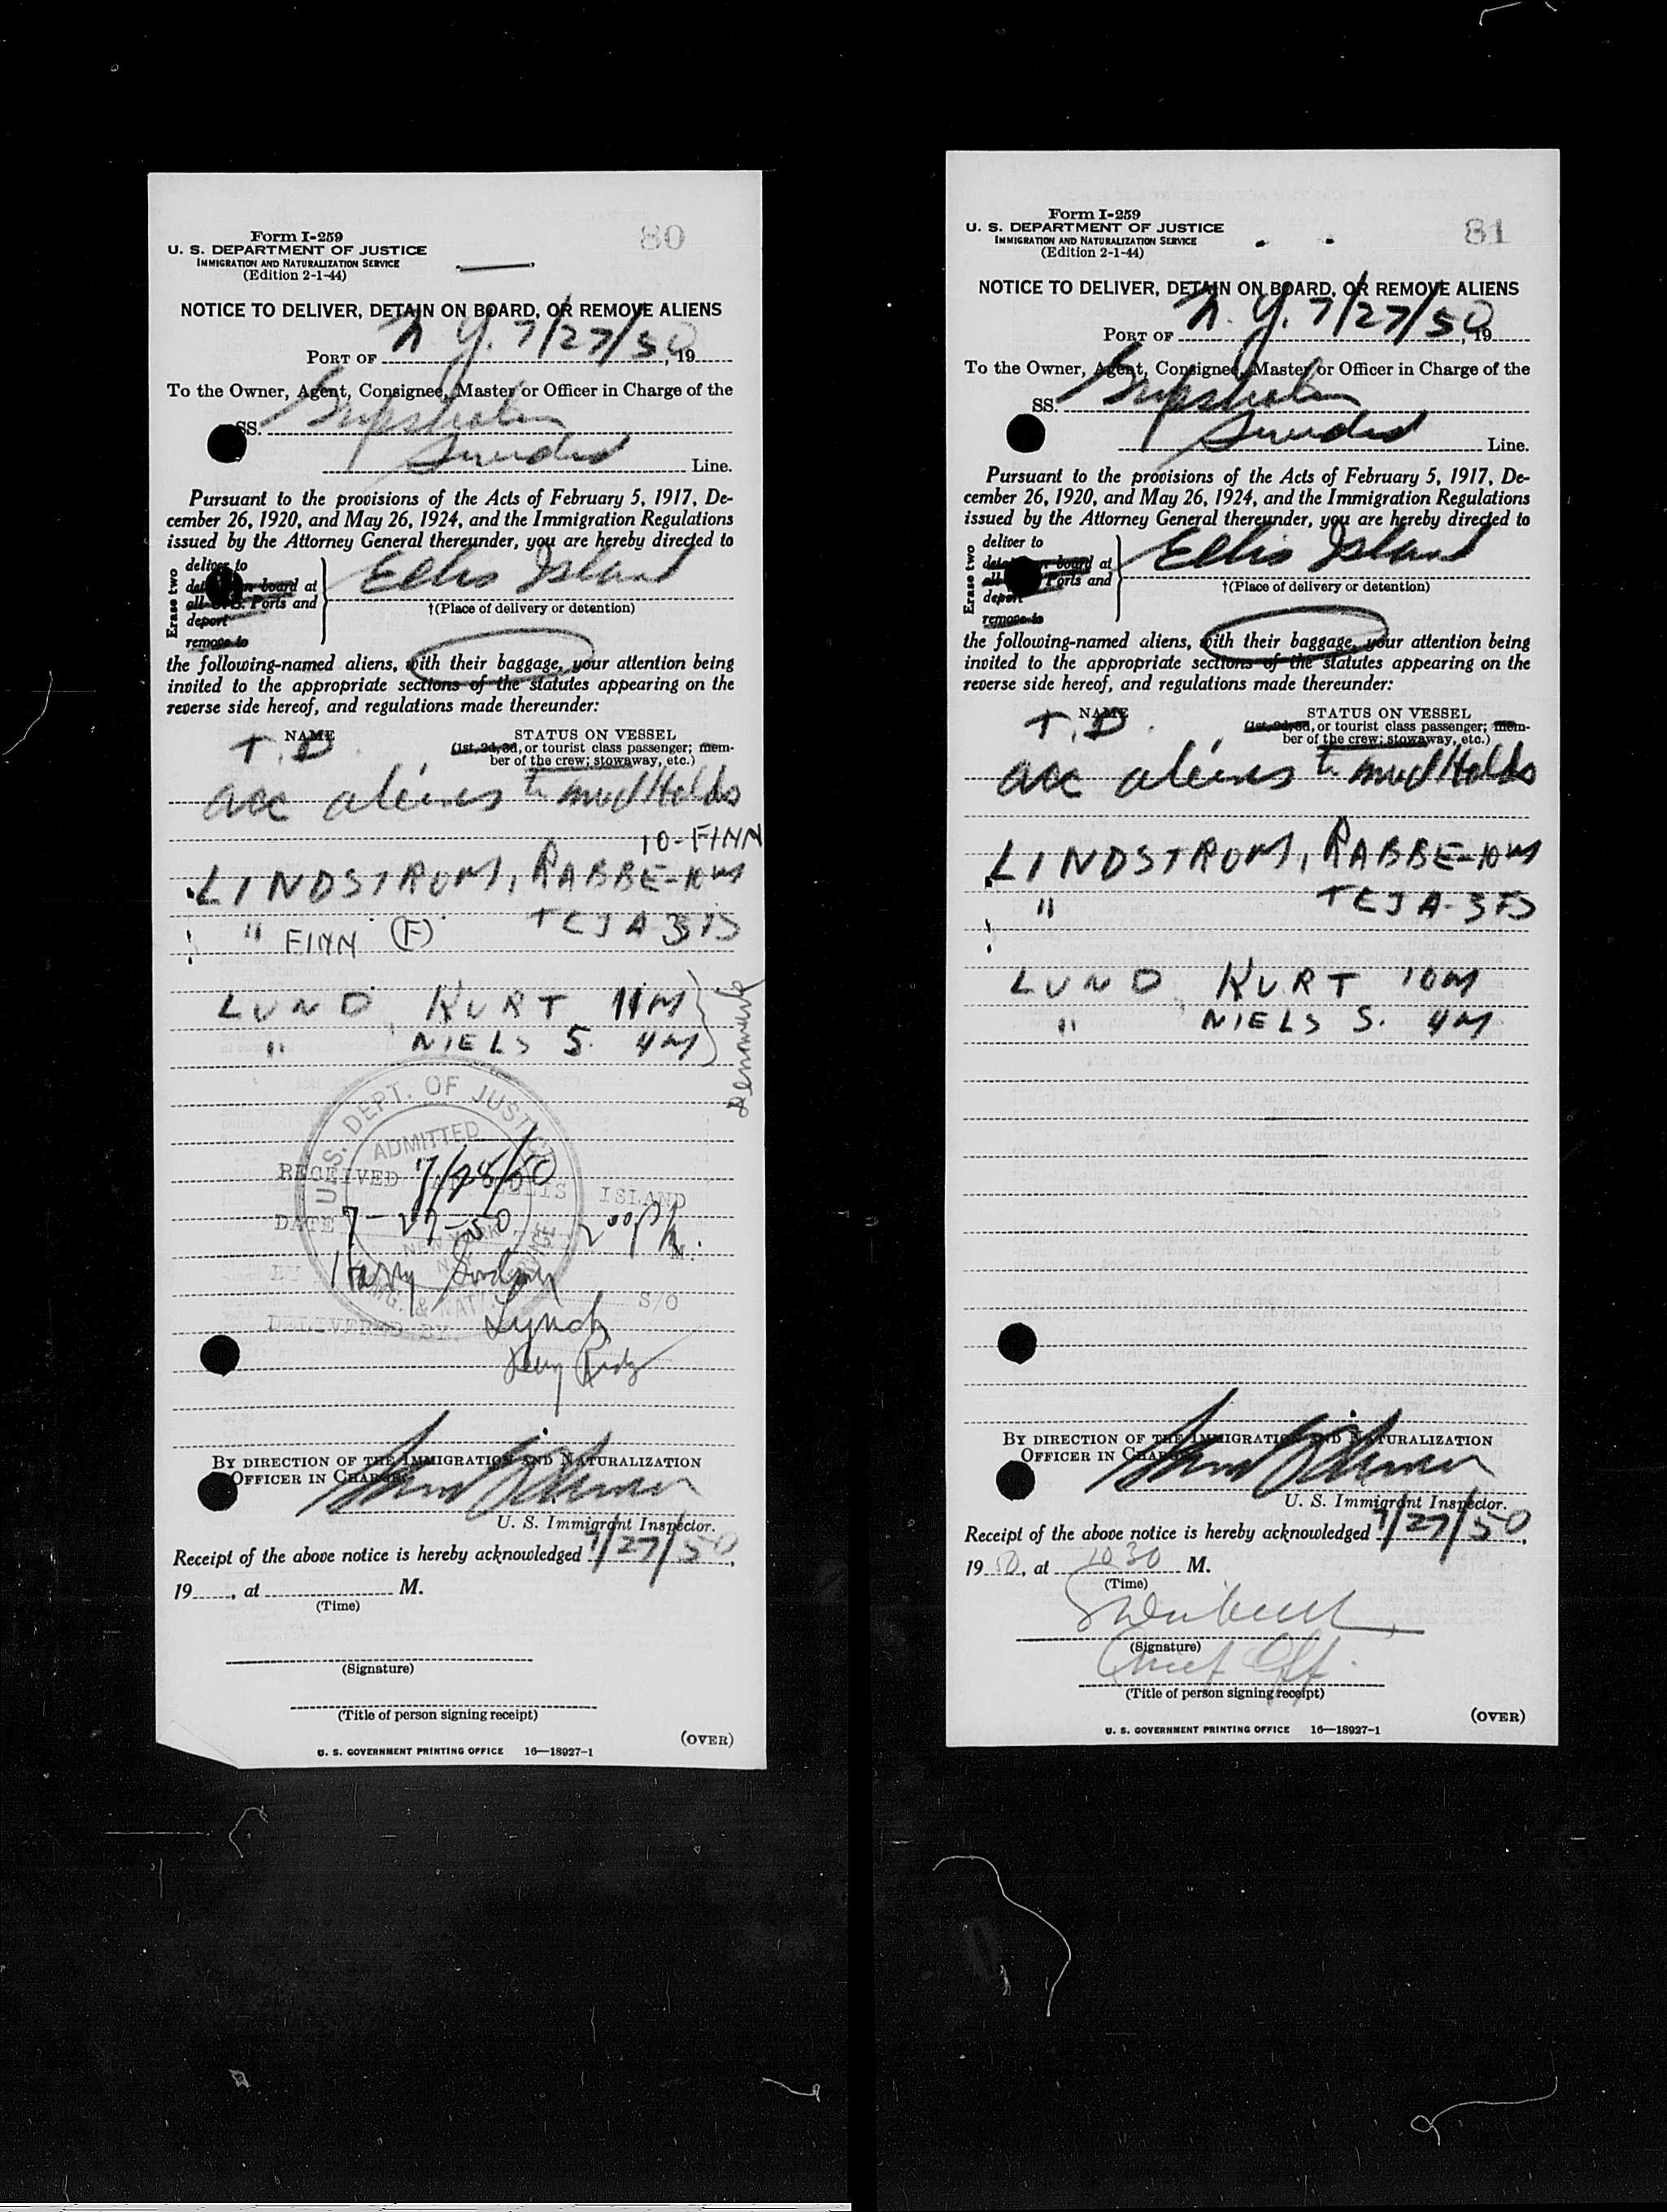 Form I-259
80
U. S. DEPARTMENT OF JUSTICE
IMMIGRATION AND NATURALIZATION SERVICE
(Edition 2-1-44)
NOTICE TO DELIVER, DETAIN ON BOARD, OR REMOVE ALIENS
PORT OF N.Y. 7/27/50, 19
To the Owner, Agent, Consignee, Master, or Officer in Charge of the
SS. Gripsholm
Line.
Pursuant to the provisions of the Acts of February 5, 1917, De-
cember 26, 1920, and May 26, 1924, and the Immigration Regulations
issued by the Attorney General thereunder, you are hereby directed to
Erase two
deliver to
on board at
all U.S. Ports and
deport
remove to
Ellis Island
†(Place of delivery or detention)
the following-named aliens, with their baggage, your attention being
invited to the appropriate sections of the statutes appearing on the
reverse side hereof, and regulations made thereunder:
NAME
T.D
STATUS ON VESSEL
(1st, 2d, 3d, or tourist class passenger; mem-
ber of the crew; stowaway, etc.)
acc aliens to med Holds
10-FINN
LINDSTROM, RABBE-10M
" FINN (F) TEJA 3
LUND, KURT 11M
" NIELS S. 4M
Denmark
U. S. DEPT. OF JUSTICE
ADMITTED
7/28/50
RECEIVED AT ELLIS ISLAND
DATE 7-27-50 2 00 P M.
NEW YORK
BY Harry
IMMG. & NATZ. SERVICE
S/O
DELIVERED BY Lynch
BY DIRECTION OF THE IMMIGRATION AND NATURALIZATION
OFFICER IN CHARGE:
U. S. Immigrant Inspector.
Receipt of the above notice is hereby acknowledged 7/27/50,
19, at M.
(Time)
(Signature)
(Title of person signing receipt)
(OVER)
U. S. GOVERNMENT PRINTING OFFICE 16—18927-1
Form I-259
81
U. S. DEPARTMENT OF JUSTICE
IMMIGRATION AND NATURALIZATION SERVICE
(Edition 2-1-44)
NOTICE TO DELIVER, DETAIN ON BOARD, OR REMOVE ALIENS
PORT OF N.Y. 7/27/50, 19
To the Owner, Agent, Consignee, Master, or Officer in Charge of the
SS. Gripsholm
Line.
Pursuant to the provisions of the Acts of February 5, 1917, De-
cember 26, 1920, and May 26, 1924, and the Immigration Regulations
issued by the Attorney General thereunder, you are hereby directed to
Erase two
deliver to
on board at
all Ports and
deport
remove to
Ellis Island
†(Place of delivery or detention)
the following-named aliens, with their baggage, your attention being
invited to the appropriate sections of the statutes appearing on the
reverse side hereof, and regulations made thereunder:
NAME
T.D.
STATUS ON VESSEL
(1st, 2d, 3d, or tourist class passenger; mem-
ber of the crew; stowaway, etc.)
acc aliens to med Holds
LINDSTROM, RABBE-10M
" TEJA-3
LUND, KURT 10M
" NIELS S. 4M
BY DIRECTION OF THE IMMIGRATION AND NATURALIZATION
OFFICER IN CHARGE:
U. S. Immigrant Inspector.
Receipt of the above notice is hereby acknowledged 7/27/50,
19 50, at 10 30 M.
(Time)
(Signature)
Chief Off.
(Title of person signing receipt)
(OVER)
U. S. GOVERNMENT PRINTING OFFICE 16—18927-1